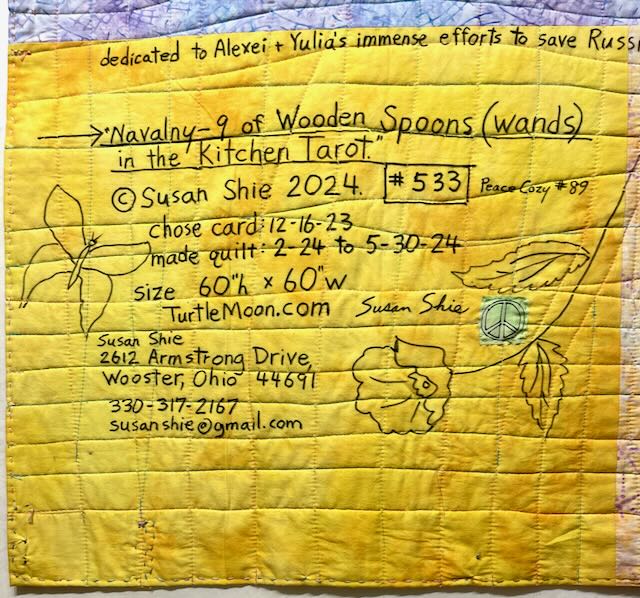 dedicated to Alexei + Yulia's immense efforts to save Russi
"Navalny-9 of Wooden Spoons (wands)
in the "Kitchen Tarot."
© Susan Shie 2024. #533 Peace Cozy #89
chose card: 12-16-23
made quilt: 2-24 to 5-30-24
size 60"h x 60"w
TurtleMoon.com Susan Shie
Susan Shie
2612 Armstrong Drive,
Wooster, Ohio 44691
330-317-2167
susanshie@gmail.com